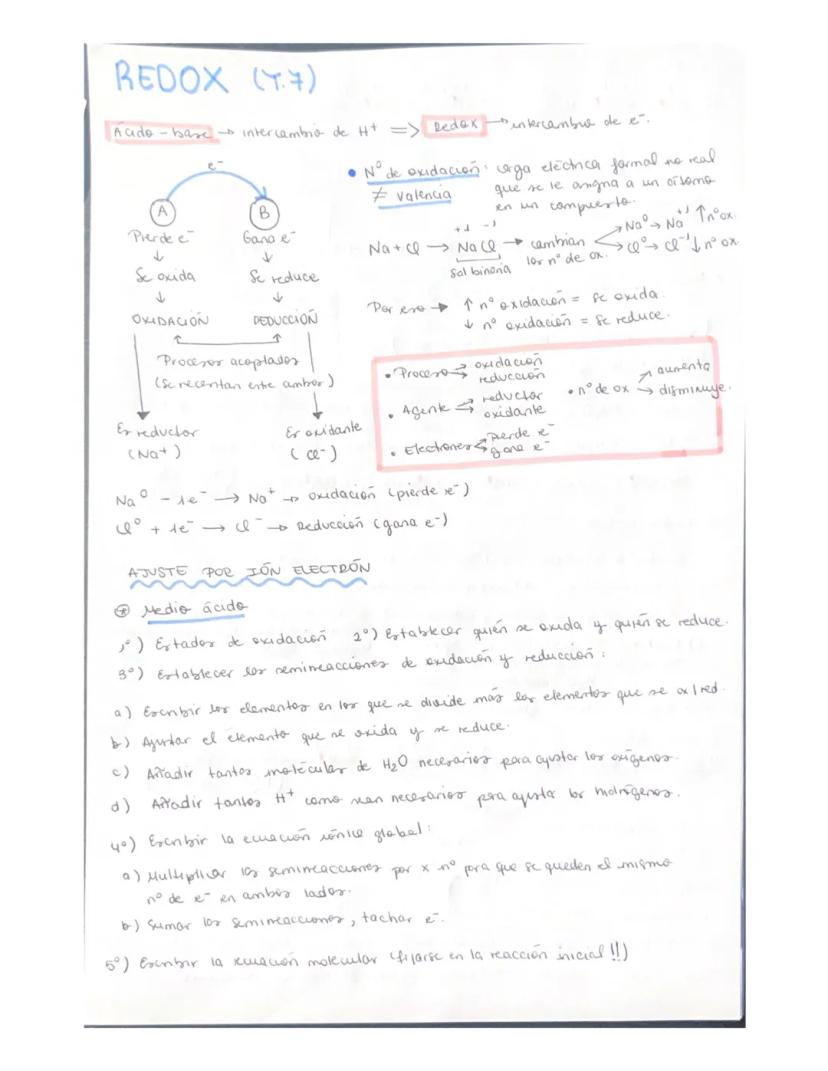 REDOX (T.7)
Ácido-base → intercambio de H+ => Redox → intercambio de e-.
e-
A B
Pierde e- Gana e-
↓ ↓
Se oxida Se reduce
↓ ↓
OXIDACIÓN REDUCCIÓN
Procesos acoplados
(Se necesitan entre ambos)
Es reductor Es oxidante
(Na+) (Cl-)
• Nº de oxidación: carga eléctrica formal no real
≠ valencia que se le asigna a un átomo
en un compuesto.
+1 -1
Na + Cl → NaCl → cambian Na⁰ → Na+1 ↑nº ox.
Sal binaria los nº de ox. Cl⁰ → Cl-1 ↓nº ox
Por eso → ↑ nº oxidación = se oxida.
↓ nº oxidación = se reduce.
• Proceso → oxidación
→ reducción
• Agente → reductor
→ oxidante
• Electrones pierde e-
gana e-
• nº de ox → aumenta
→ disminuye.
Na⁰ - 1e- → Na+ → oxidación (pierde e-)
Cl⁰ + 1e- → Cl- → Reducción (gana e-)
AJUSTE POR IÓN ELECTRÓN
* Medio ácido
1º) Estados de oxidación 2º) Establecer quién se oxida y quién se reduce.
3º) Establecer las semireacciones de oxidación y reducción:
a) Escribir los elementos en los que se divide más los elementos que se ox/red.
b) Ajustar el elemento que se oxida y se reduce.
c) Añadir tantas moléculas de H2O necesarias para ajustar los oxígenos.
d) Añadir tantos H+ como sean necesarios para ajustar los hidrógenos.
4º) Escribir la ecuación iónica global:
a) Multiplicar las semireacciones por x nº para que se queden el mismo
nº de e- en ambos lados.
b) Sumar las semireacciones, tachar e-.
5º) Escribir la ecuación molecular (fijarse en la reacción inicial!!)